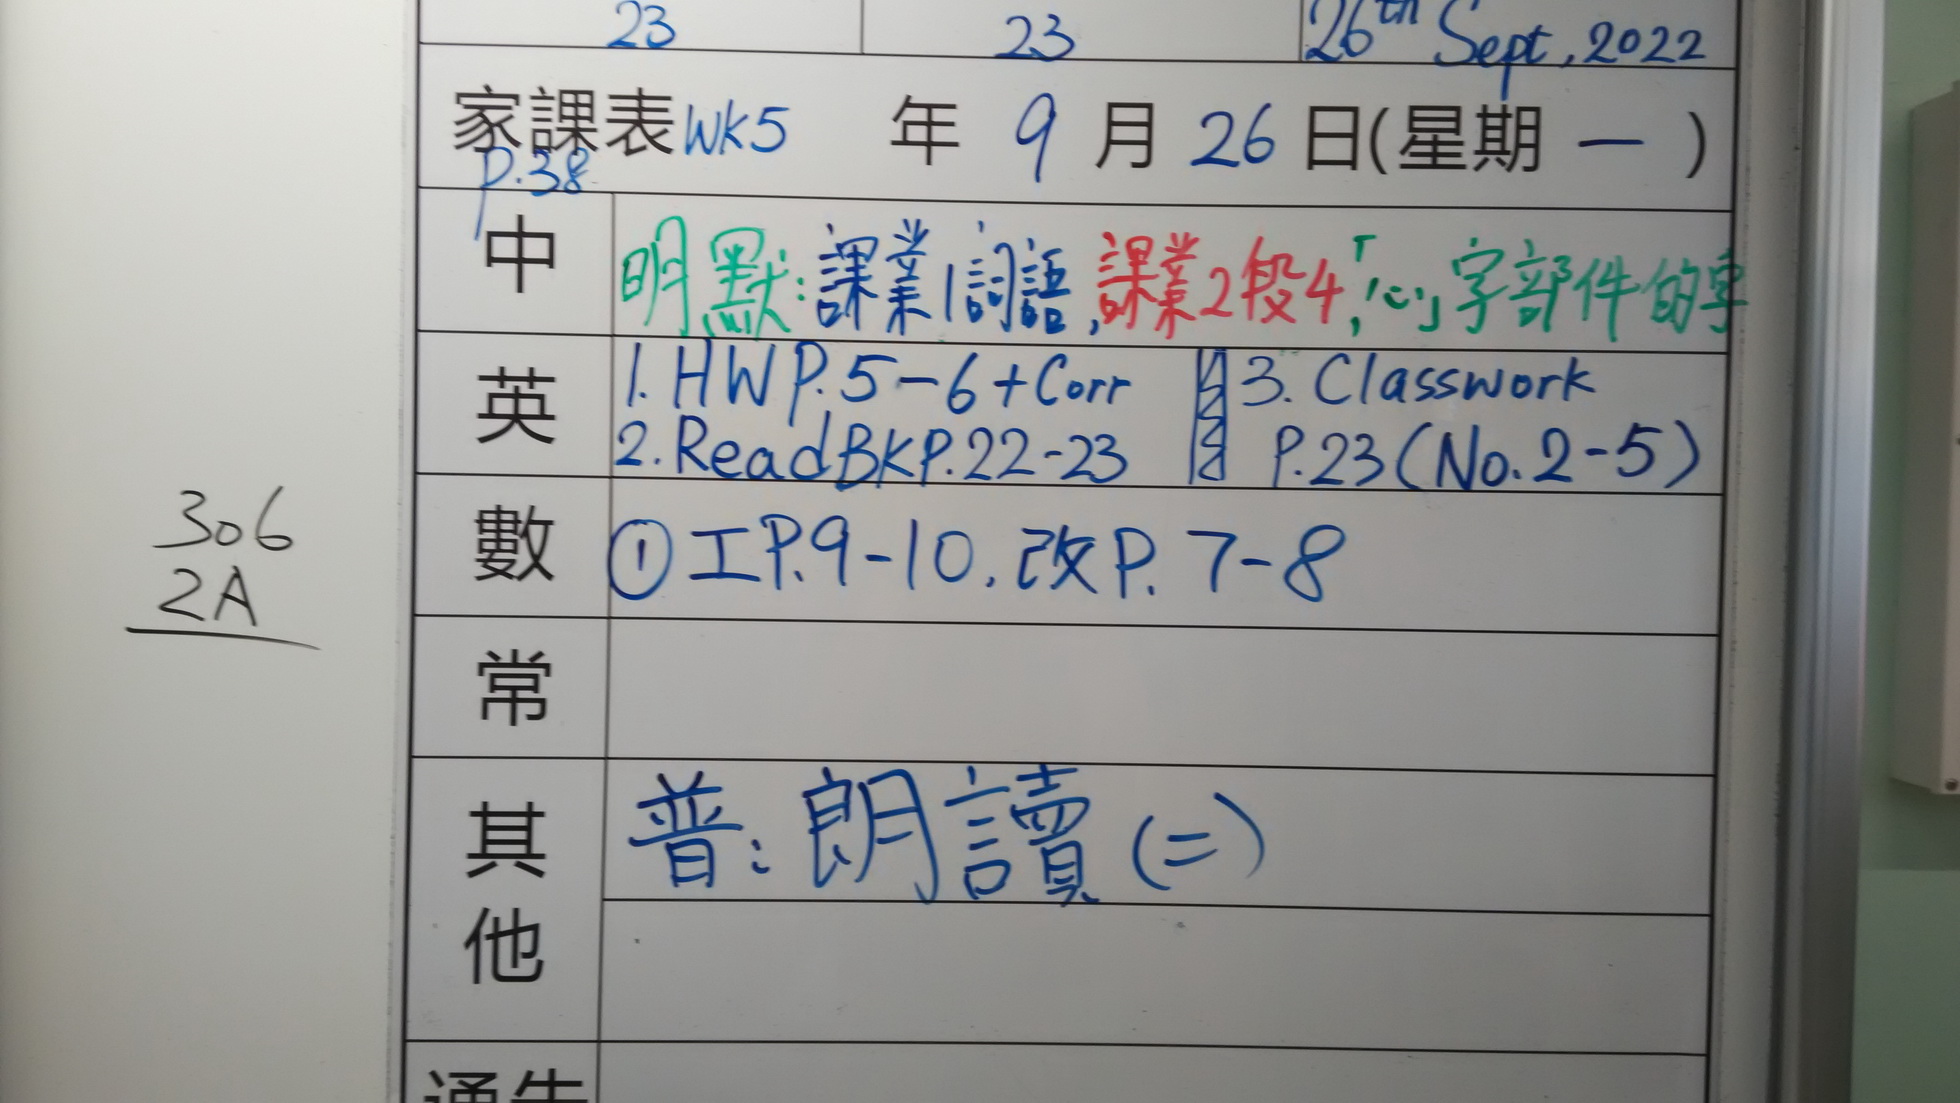 23 23 26th Sept, 2022
家課表 Wk5 年 9 月 26 日(星期 一 )
P.38
中 明默:課業1詞語,課業2段4,「心」字部件的字
英 1. HW P.5-6+Corr 3. Classwork
2. Read BK P.22-23 P.23(No.2-5)
306
2A
數 ①工P.9-10. 改P. 7-8
常
其他 普:朗讀(二)
通告